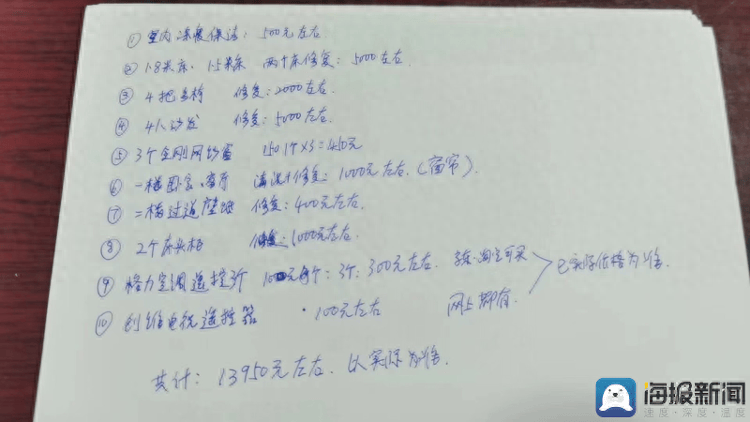 ① 室内深度保洁：500元左右
② 1.8米床、1.5米床 两个床修复：5000左右.
③ 4把多椅 修复：2000左右.
④ 4人沙发 修复：5000左右.
⑤ 3个金刚网纱窗 150个×3=450元
⑥ 一楼卧室、客厅 清洗+修复：1000元左右.（窗帘）.
⑦ 二楼过道壁 修复：400元左右.
⑧ 2个床头柜 修复：1000元左右.
⑨ 格力空调遥控器 100元每个：3个：300元左右. 淘宝可买 已实际价格为准.
⑩ 创维电视遥控器 100元左右 网上都有.
共计：13950元左右. 以实际为准.
海报新闻
速度·深度·温度